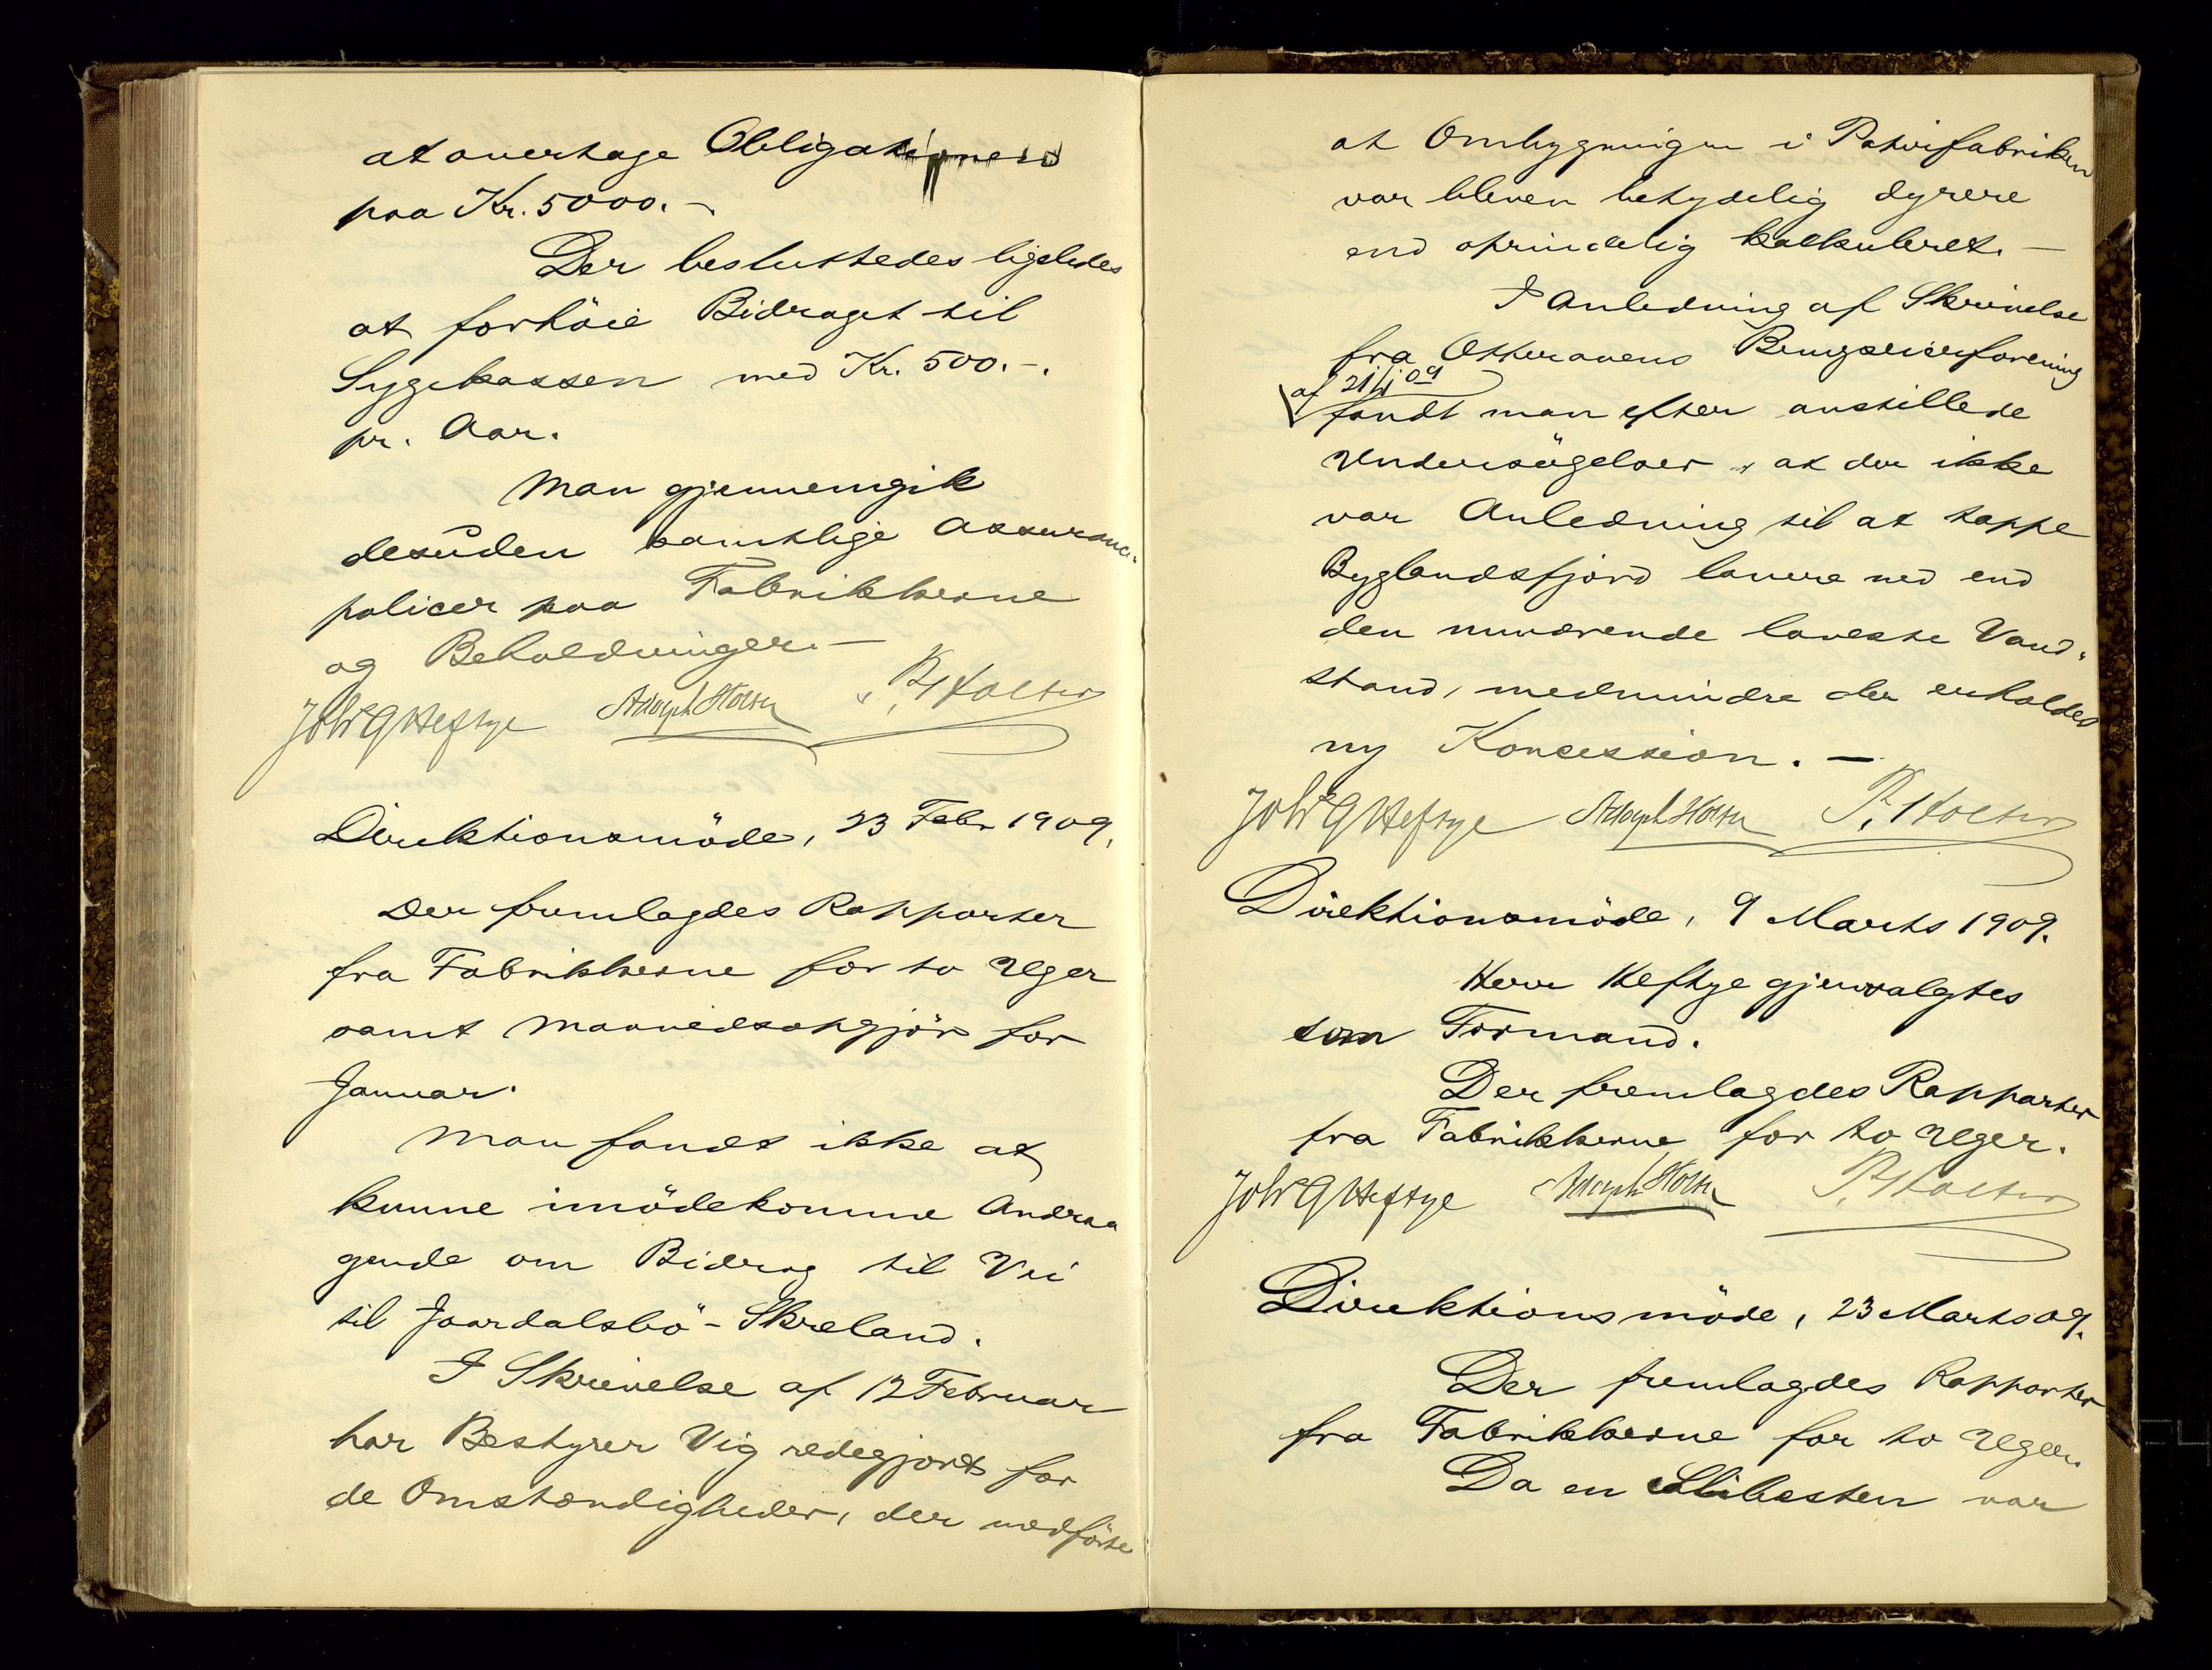 at overtage Obligationer
paa Kr. 5000.-
Der besluttedes ligeledes
at forhöie Bidraget til
Sygekassen med Kr. 500.-.
pr. Aar.
Man gjennemgik
desuden samtlige Assurance-
policer paa Fabrikkerne
og Beholdninger.-
Joh's G Heftye Adolph Holter P. Holter
Direktionsmöde, 23 Febr 1909.
Der fremlagdes Rapporter
fra Fabrikkerne for to Uger
samt Maanedsopgjör for
Januar.
Man fandt ikke at
kunne imödekomme Andraa
gende om Bidrag til Vei
til Jaardalsbö-Skreland.
I Skrivelse af 12 Februar
har Bestyrer Vig redegjort for
de Omstændigheder, der medförte
at Ombygningen i Papirfabriken
var bleven betydelig dyrere
end oprindelig kalkuleret.-
I Anledning af Skrivelse
fra Otteraaens Brugseierforening
af 21/1 09
fandt man efter anstillede
Undersögelser, at der ikke
var Anledning til at tappe
Byglandsfjord lavere ned end
den nuværende laveste Vand-
stand, medmindre der erholdes
ny Koncession.-
Joh's G Heftye Adolph Holter P. Holter
Direktionsmöde, 9 Marts 1909.
Herr Heftye gjenvalgtes
som Formand.
Der fremlagdes Rapporter
fra Fabrikkerne for to Uger.
Joh's G Heftye Adolph Holter P. Holter
Direktionsmöde, 23 Marts 09.
Der fremlagdes Rapporter
fra Fabrikkerne for to Uger.
Da en Slibesten var